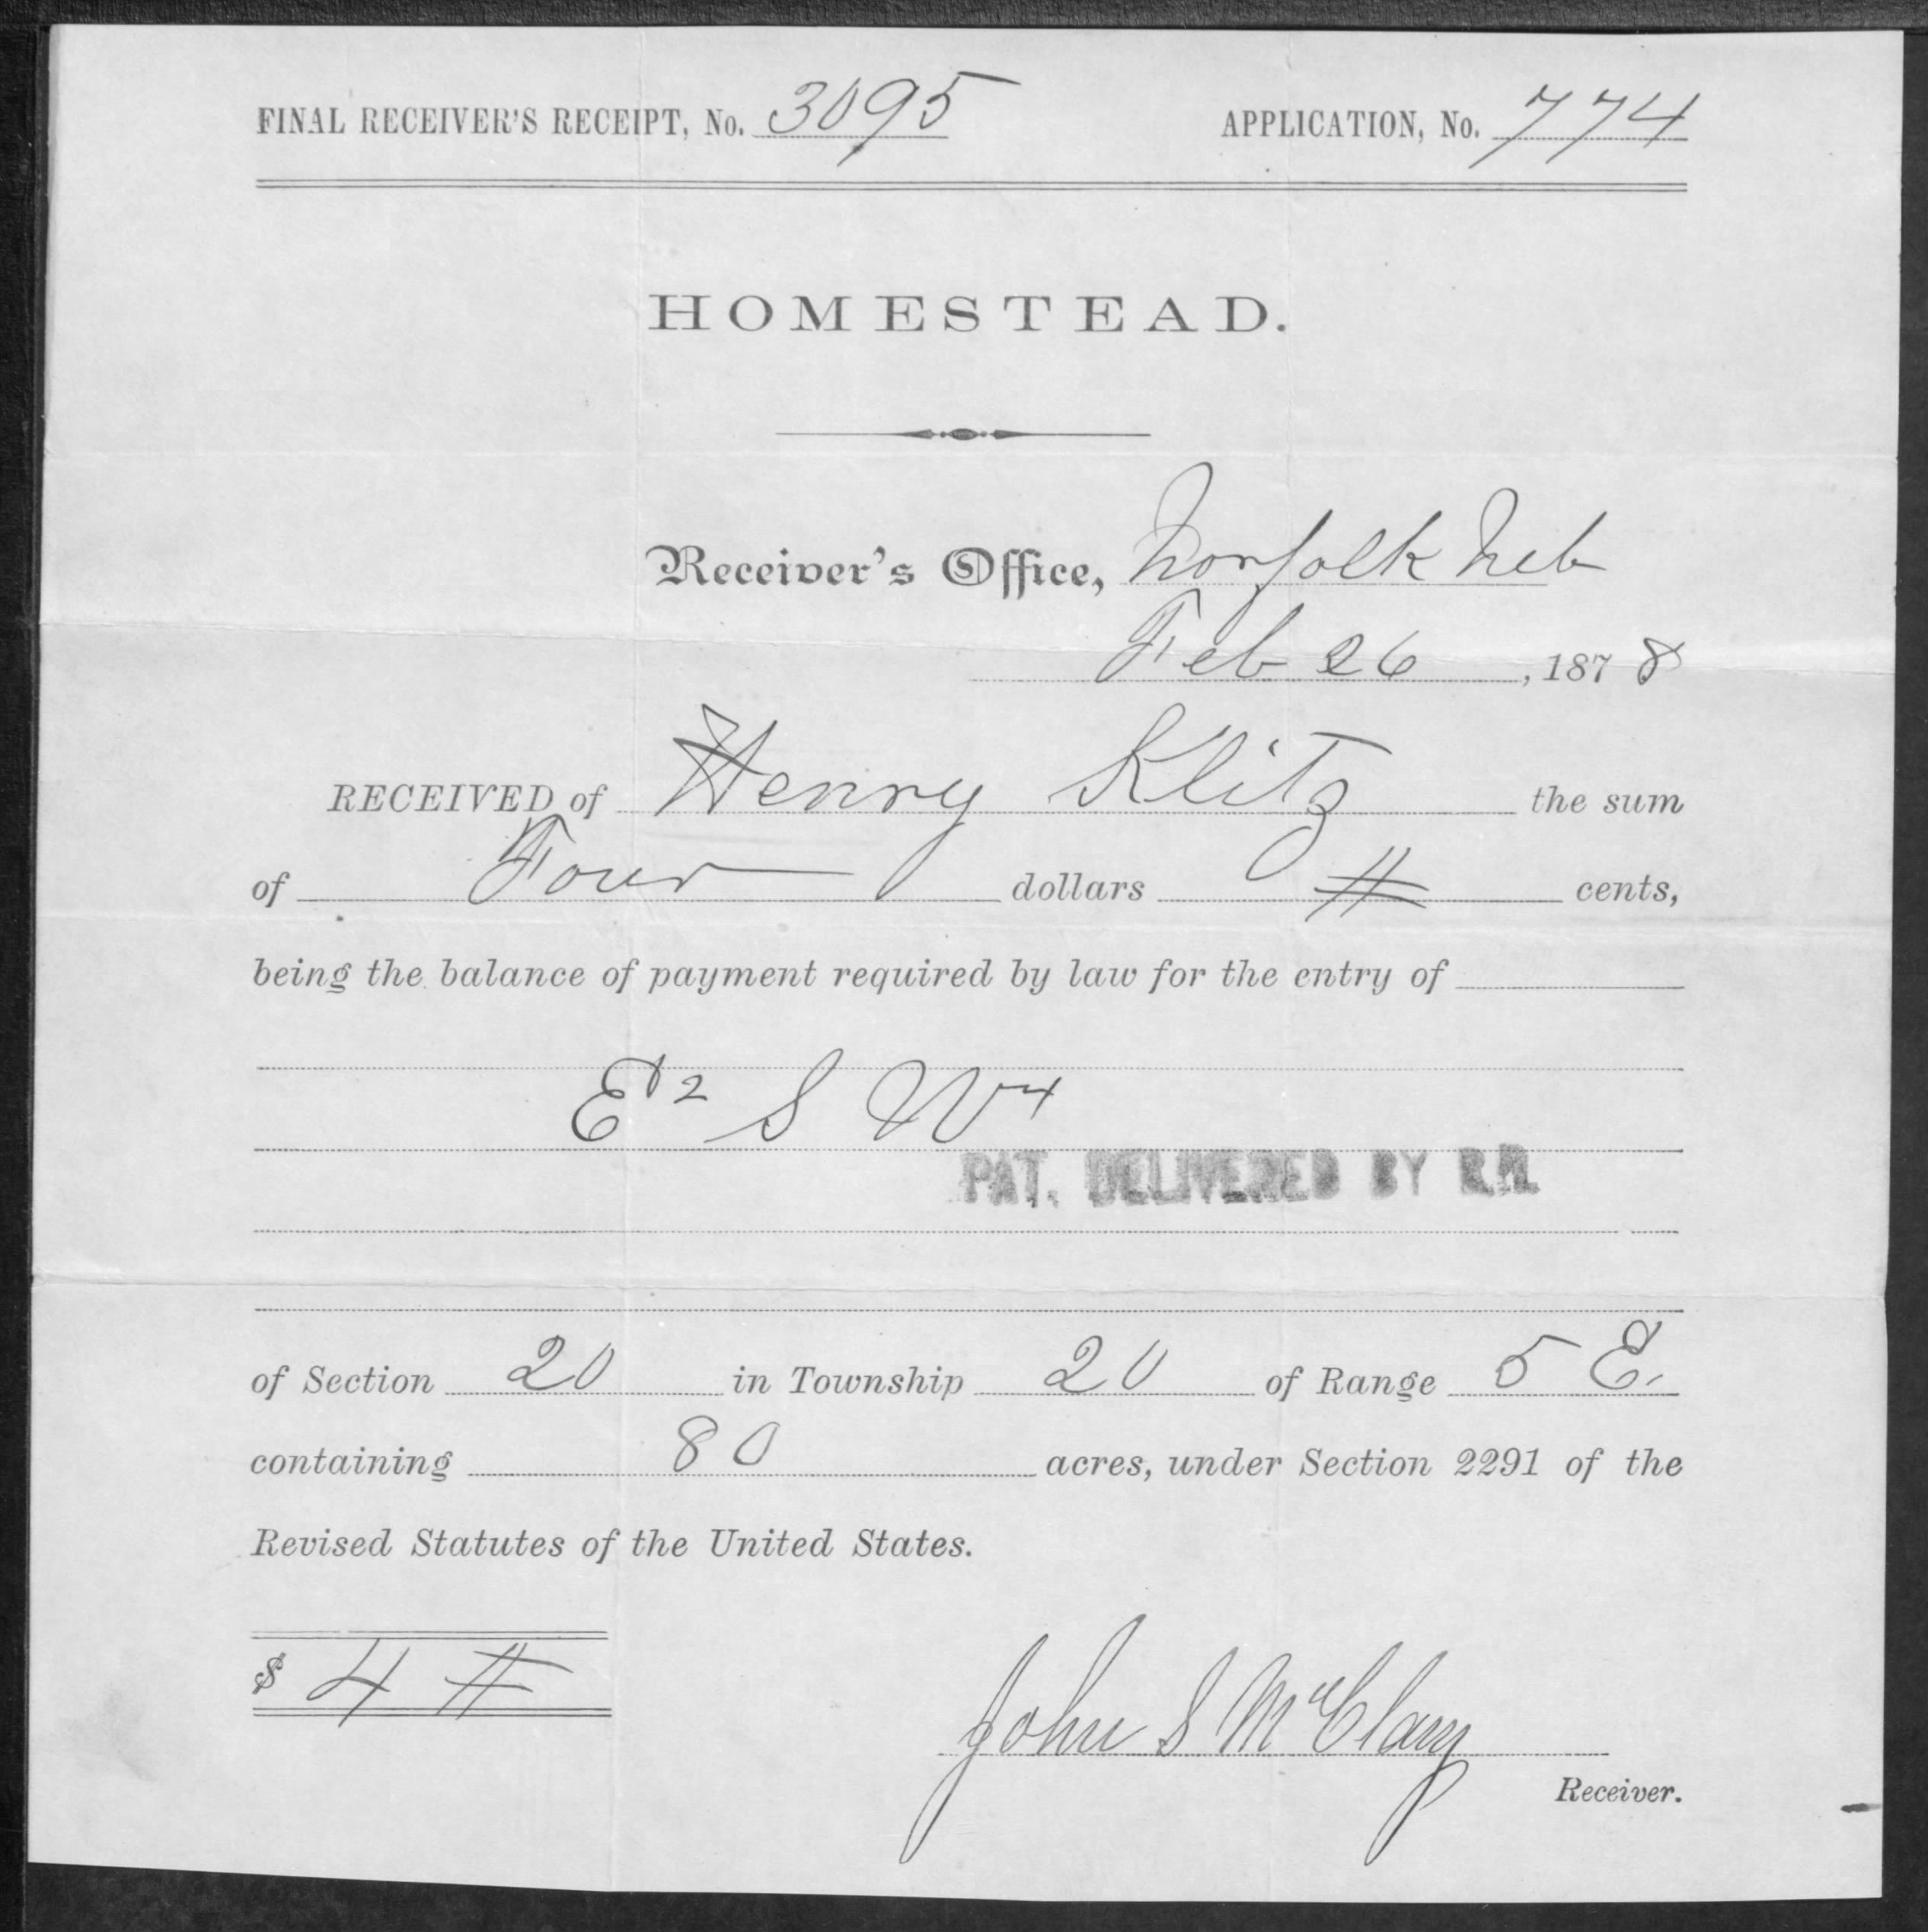 FINAL RECEIVER'S RECEIPT, No. 3095 APPLICATION, No. 774
HOMESTEAD.
Receiver's Office, Norfolk Neb
Feb 26, 1878
RECEIVED of Henry Klitz the sum
of Four dollars # cents,
being the balance of payment required by law for the entry of
E 2 S W 4
PAT. DELIVERED BY
of Section 20 in Township 20 of Range 5 E.
containing 80 acres, under Section 2291 of the
Revised Statutes of the United States.
$ 4 #
John S McClary
Receiver.